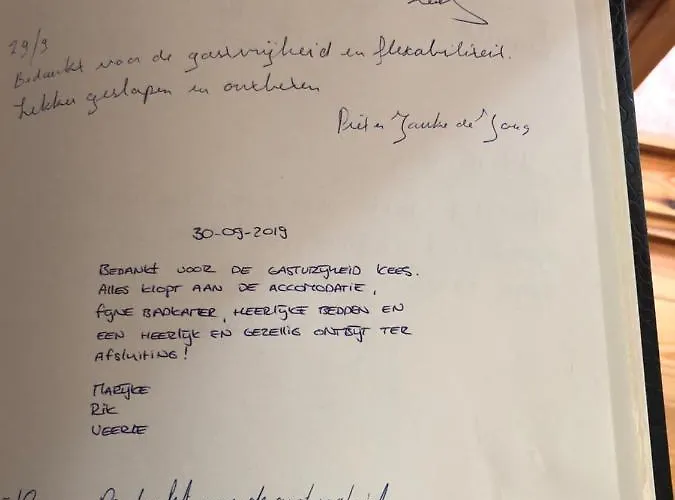 29/9
Bedankt voor de gastvrijheid en flexabiliteit.
Lekker geslapen en ontbeten
Piet en Janke de Jong
30-09-2019
BEDANKT VOOR DE GASTVRIJHEID KEES.
ALLES KLOPT AAN DE ACCOMODATIE,
FIJNE BADKAMER, HEERLIJKE BEDDEN EN
EEN HEERLIJK EN GEZELLIG ONTBIJT TER
AFSLUITING!
MARIJKE
RIK
VEERLE